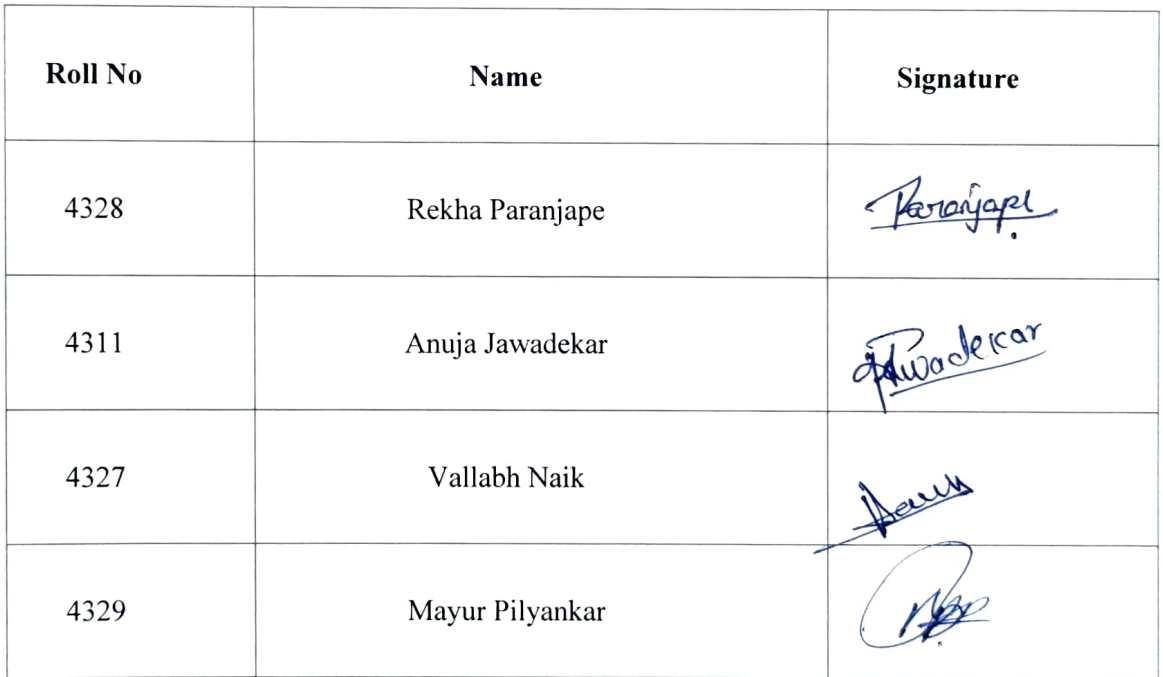 Roll No Name Signature
4328 Rekha Paranjape Paranjape
4311 Anuja Jawadekar Jawadekar
4327 Vallabh Naik
4329 Mayur Pilyankar